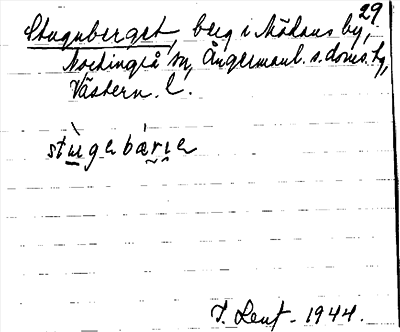 29.
Stuguberget, berg i Mädans by,
Nordingrå sn, Ångermanl. s. doms. tg,
Västern. l.
stùgebä́rıe
1944.